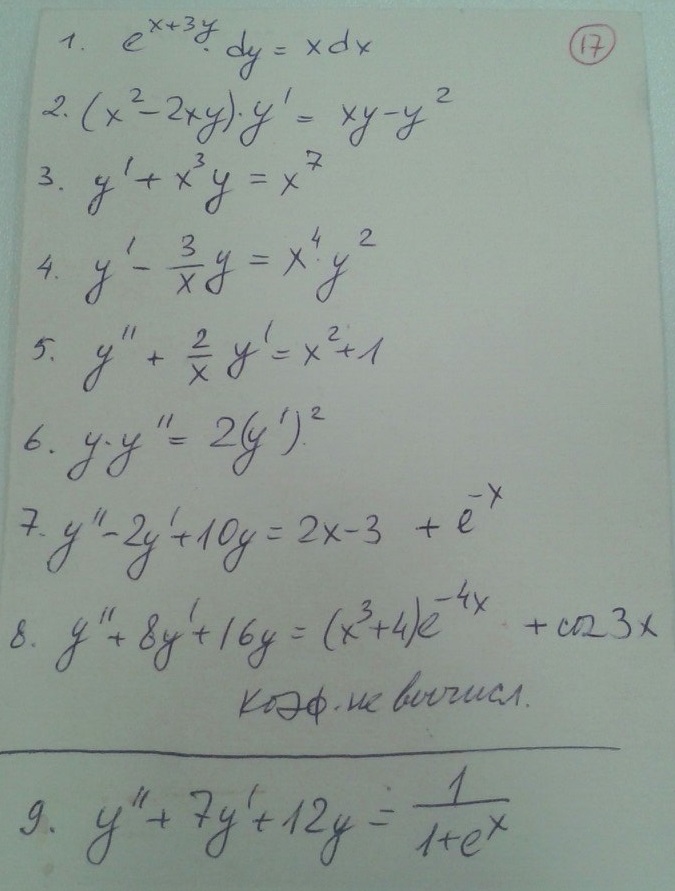 1. e^{x+3y} · dy = xdx
17
2. (x^2 - 2xy) · y' = xy - y^2
3. y' + x^3y = x^7
4. y' - \frac{3}{x}y = x^4 · y^2
5. y'' + \frac{2}{x} y' = x^2 + 1
6. y · y'' = 2(y')^2
7. y'' - 2y' + 10y = 2x - 3 + e^{-x}
8. y'' + 8y' + 16y = (x^3 + 4)e^{-4x} + cos 3x
коэф. не вычисл.
9. y'' + 7y' + 12y = \frac{1}{1+e^x}